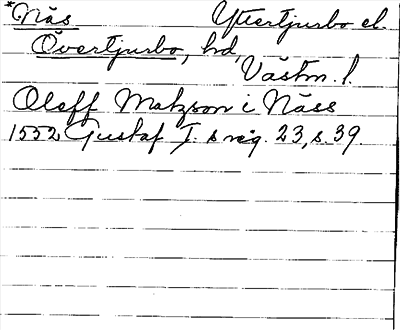 *Näs Yttertjurbo el.
Övertjurbo, hd,
Västm. l.
Oloff Matzson i Näss
1552 Gustaf I:s reg. 23, s. 39.